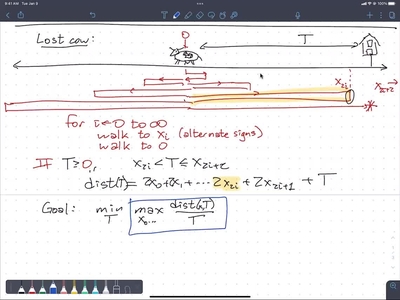 9:41 AM Tue Jan 5
Lost cow:
0
T
x_{2i}
x_{2i+2}
for i ← 0 to ∞
walk to x_i (alternate signs)
walk to 0
If T ≥ 0, x_{2i} < T ≤ x_{2i+2}
dist(T) = 2x_0 + 2x_1 + ... 2x_{2i} + 2x_{2i+1} + T
Goal: min_T max_{x_0...} dist(x, T) / T